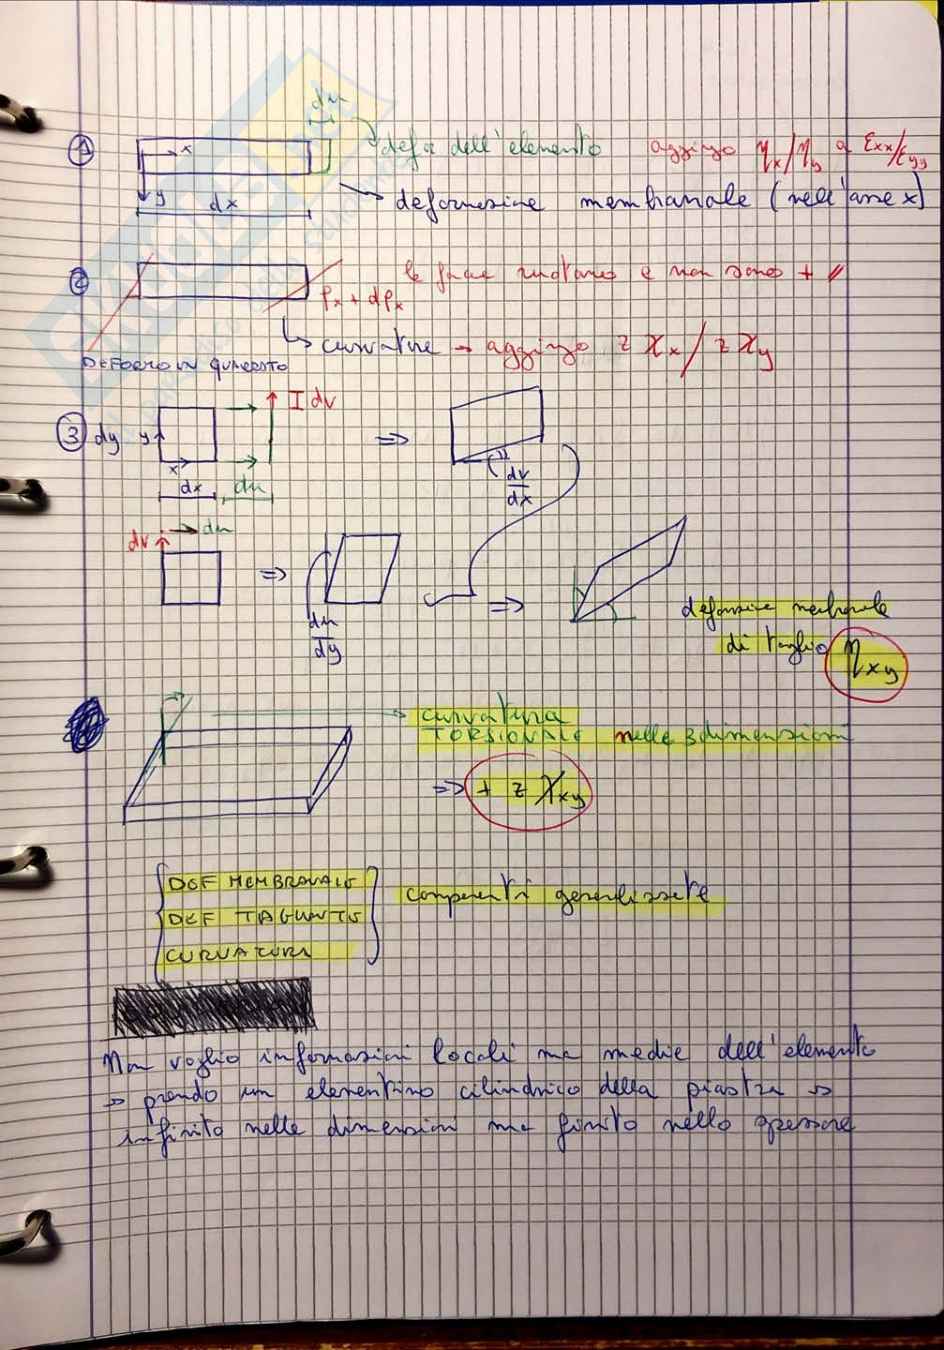 du
① x defo dell'elemento aggiungo ηx/ηy a εxx/εyy
y dx deformazione membranale (nell'asse x)
② le facce ruotano e non sono + //
ρx + dρx
↳ curvature → aggiungo z χx / z χy
DEFORMO IN QUESTO
③ dy y I dv
x ⇒ dv/dx
dx du
dv du
⇒ ⇒
du/dy
deformazione membranale
di taglio ηxy
curvatura
TORSIONALE nelle 3 dimensioni
⇒ + z χxy
DEF MEMBRANALE
DEF TAGLIANTE componenti generalizzate
CURVATURA
Non voglio informazioni locali ma medie dell'elemento
→ prendo un elementino cilindrico della piastra →
infinito nelle dimensioni ma finito nello spessore